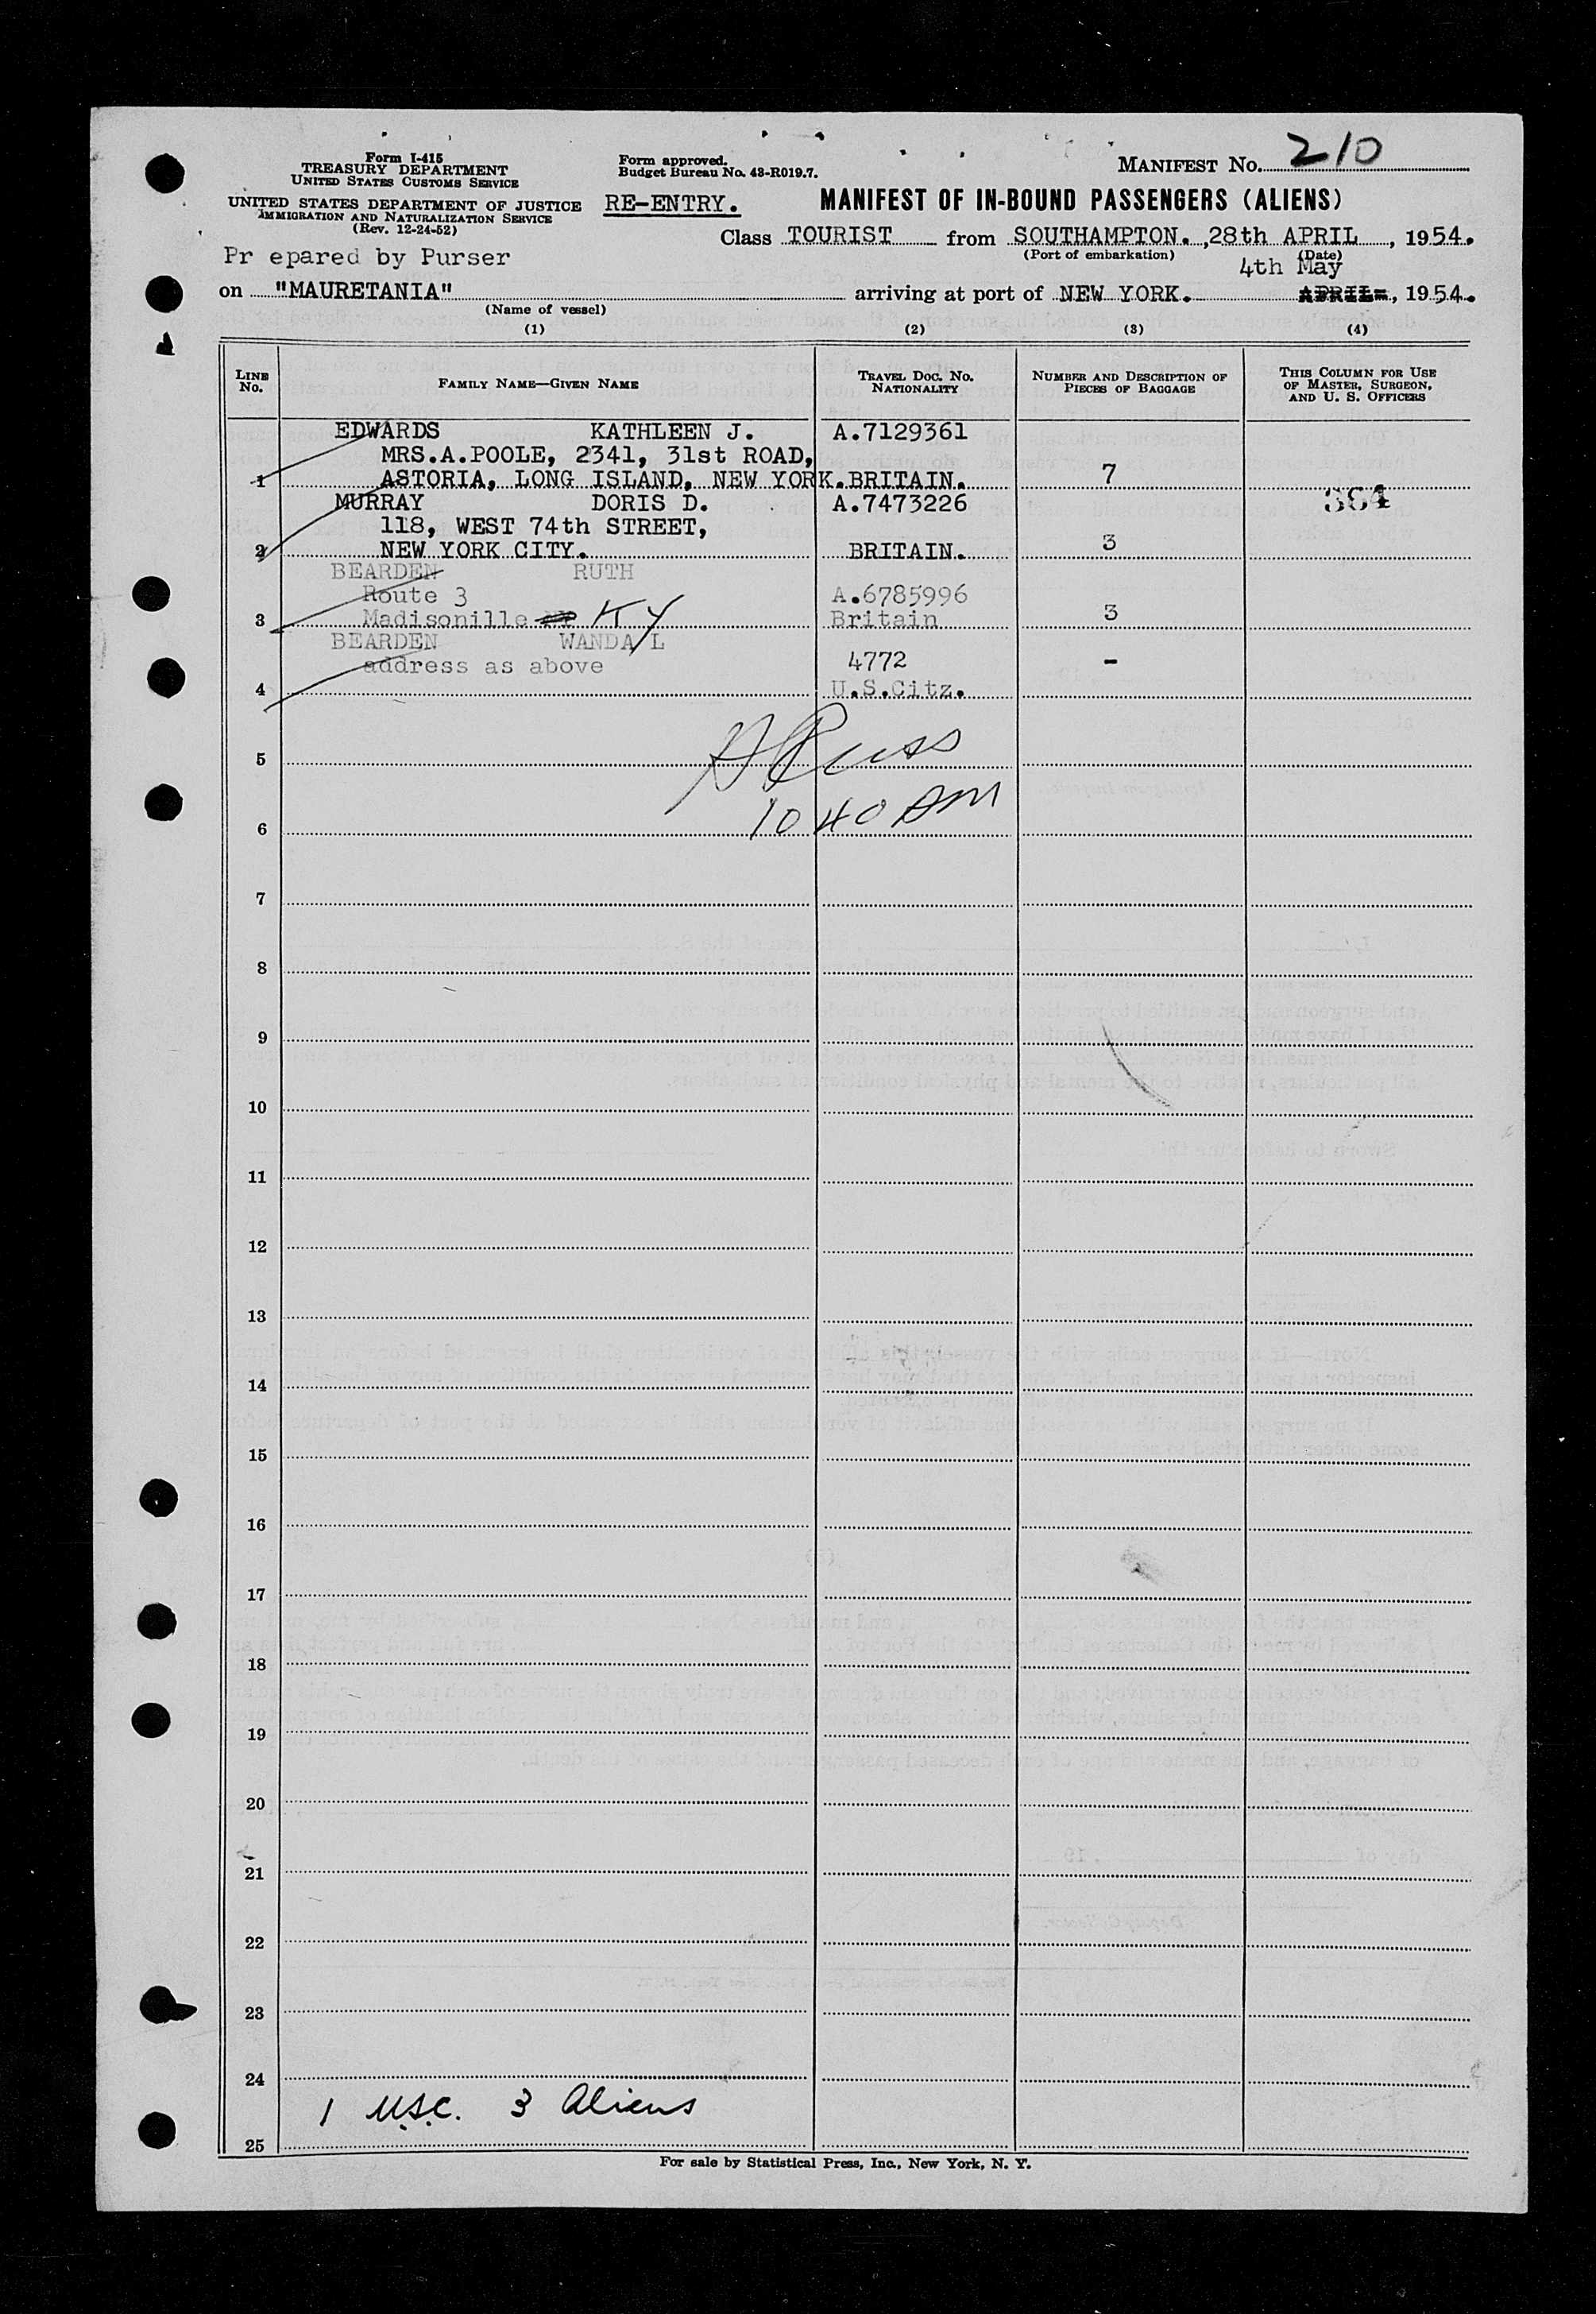 Form I-415
TREASURY DEPARTMENT
UNITED STATES CUSTOMS SERVICE
UNITED STATES DEPARTMENT OF JUSTICE
IMMIGRATION AND NATURALIZATION SERVICE
(Rev. 12-24-52)
Form approved.
Budget Bureau No. 43-R019.7.
MANIFEST No. 210
RE-ENTRY.
MANIFEST OF IN-BOUND PASSENGERS (ALIENS)
Class TOURIST from SOUTHAMPTON. , 28th APRIL , 1954.
(Port of embarkation) (Date)
Pr epared by Purser
4th May
on "MAURETANIA" arriving at port of NEW YORK. APRIL , 1954.
(Name of vessel)
(1) (2) (3) (4)
LINE No. FAMILY NAME—GIVEN NAME TRAVEL DOC. No. NATIONALITY NUMBER AND DESCRIPTION OF PIECES OF BAGGAGE THIS COLUMN FOR USE OF MASTER, SURGEON, AND U. S. OFFICERS
EDWARDS KATHLEEN J. A.7129361
MRS.A.POOLE, 2341, 31st ROAD,
1 ASTORIA, LONG ISLAND, NEW YORK. BRITAIN. 7
MURRAY DORIS D. A.7473226 364
118, WEST 74th STREET,
2 NEW YORK CITY. BRITAIN. 3
BEARDEN RUTH
Route 3 A.6785996
3 Madisonille KY Britain 3
BEARDEN WANDA L
address as above 4772 -
4 U.S.Citz.
5
10 40 AM
6
7
8
9
10
11
12
13
14
15
16
17
18
19
20
21
22
23
24
1 U.S.C. 3 Aliens
25
For sale by Statistical Press, Inc., New York, N. Y.